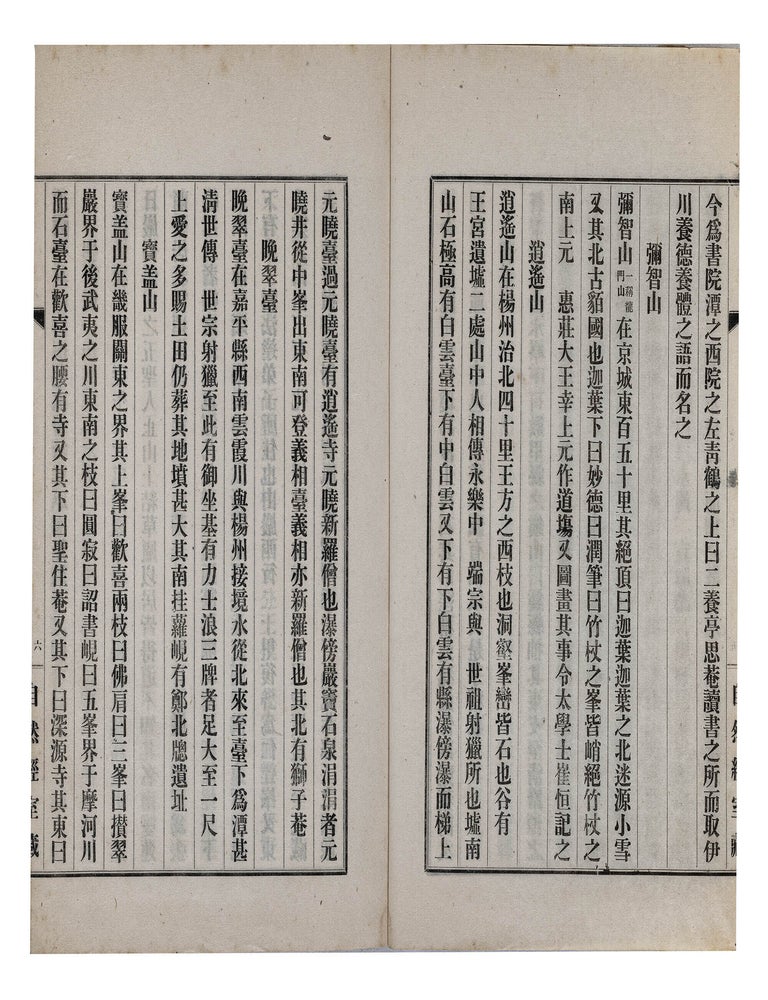 今爲書院潭之西院之左靑鶴之上曰二養亭思菴讀書之所而取伊
川養德養體之語而名之
彌智山
彌智山一稱龍門山在京城東百五十里其絕頂曰迦葉迦葉之北迷源小雪
又其北古貊國也迦葉下曰妙德曰潤筆曰竹杖之峯皆峭絕竹杖之
南上元 惠莊大王幸上元作道塲又圖畫其事令太學士崔恒記之
逍遙山
逍遙山在楊州治北四十里王方之西枝也洞壑峯巒皆石也谷有
王宮遺墟二處山中人相傳永樂中 端宗與 世祖射獵所也墟南
山石極高有白雲臺下有中白雲又下有下白雲有縣瀑傍瀑而梯上
元曉臺過元曉臺有逍遙寺元曉新羅僧也瀑傍巖竇石泉涓涓者元
曉井從中峯出東南可登義相臺義相亦新羅僧也其北有獅子菴
晩翠臺
晩翠臺在嘉平縣西南雲霞川與楊州接境水從北來至臺下爲潭甚
淸世傳 世宗射獵至此有御坐基有力士浪三牌者足大至一尺
上愛之多賜土田仍葬其地墳甚大其南挂蘿峴有鄭北牕遺址
寶盖山
寶盖山在畿服關東之界其上峯曰歡喜兩枝曰佛肩曰三峯曰攅翠
巖界于後武夷之川東南之枝曰圓寂曰詔書峴曰五峯界于摩河川
而石臺在歡喜之腰有寺又其下曰聖住菴又其下曰深源寺其東曰
六
自然經室藏